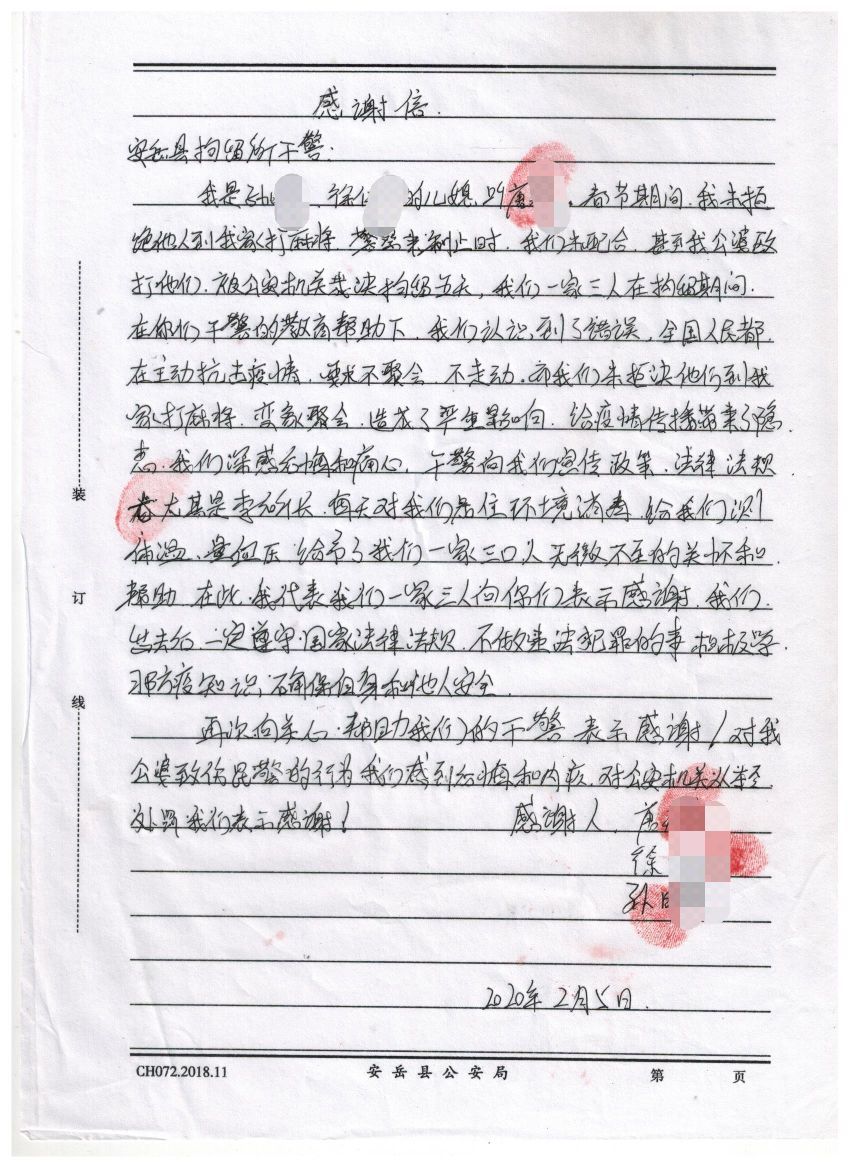 感谢信.
安岳县拘留所干警:
我是孙 、徐 的儿媳, 叫唐 。春节期间,我未拒
绝他人到我家打麻将,警察来制止时,我们未配合,甚至我公婆殴
打他们,被公安机关裁决拘留五天,我们一家三人在拘留期间,
在你们干警的教育帮助下,我们认识到了错误,全国人民都
在主动抗击疫情,要求不聚会,不走动,而我们未拒决他们到我
家打麻将,变象聚会,造成了严重影响,给疫情传播带来了隐
患,我们深感后悔和痛心,干警向我们宣传政策,法律法规
尤其是李所长,每天对我们居住环境消毒,给我们测
体温、量血压 给予了我们一家三口人无微不至的关怀和
帮助,在此,我代表我们一家三人向你们表示感谢,我们
出去后,一定遵守国家法律法规,不做违法犯罪的事,积极学
习防疫知识,确保自身和他人安全.
再次向关心、帮助我们的干警表示感谢!对我
公婆致伤民警的行为我们感到后悔和内疚,对公安机关从轻
处罚我们表示感谢! 感谢人,唐
徐
孙
2020年2月5日.
装
订
线
CH072.2018.11 安岳县公安局 第 页